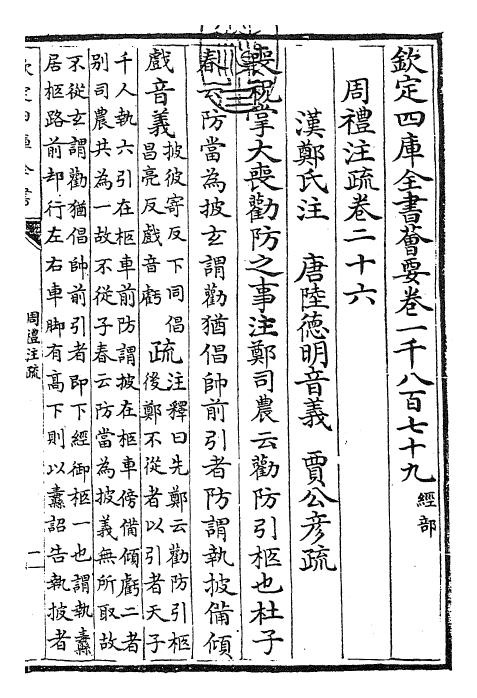 欽定四庫全書薈要卷一千八百七十九 經部
周禮注疏卷二十六
漢鄭氏注 唐陸德明音義 賈公彦疏
喪祝掌大喪勸防之事注鄭司農云勸防引柩也杜子
春云防當為披玄謂勸猶倡帥前引者防謂執披備傾
戲音義披彼寄反下同倡
昌亮反戲音虧
疏注釋曰先鄭云勸防引柩
後鄭不從者以引者天子
千人執六引在柩車前防謂披在柩車傍備傾虧二者
别司農共為一故不從子春云防當為披義無所取故
不從玄謂勸猶倡帥前引者即下經御柩一也謂執纛
居柩路前却行左右車脚有高下則以纛詔告執披者
周禮注疏
一